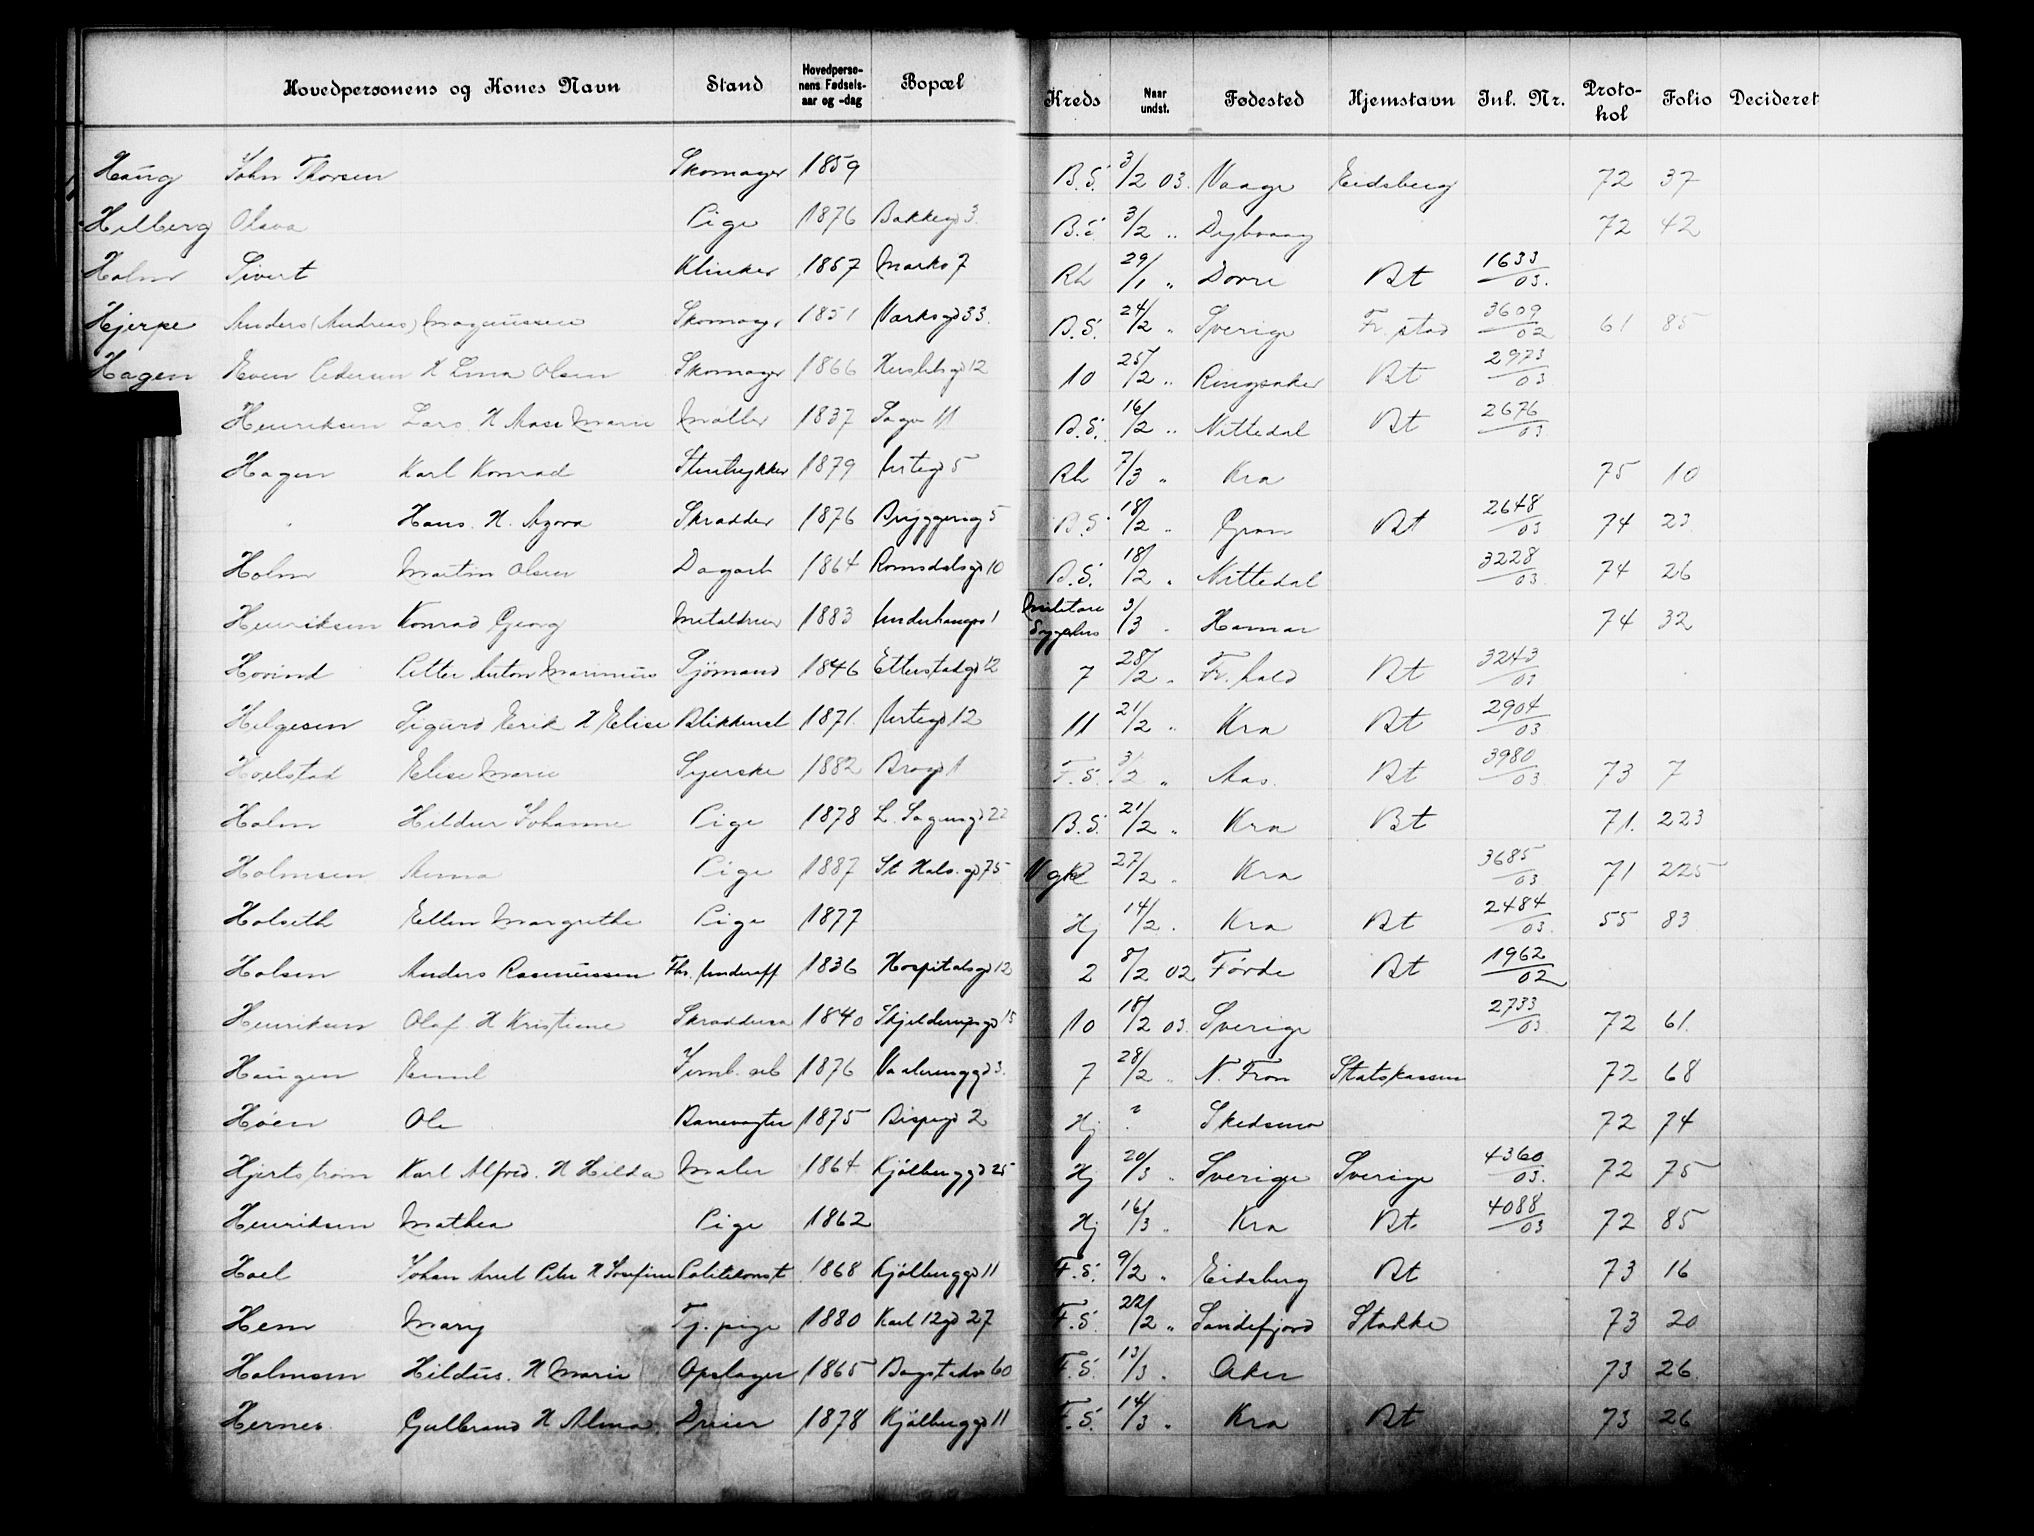 Hovedpersonens og Kones Navn Stand Hovedpersonens Fødselsaar og -dag Bopæl Kreds Naar undst. Fødested Hjemstavn Inl. Nr. Protokol Folio Decideret
Haug John Thorsen Skomager 1859 B.S. 3/2 03. Vaage Eidsberg 72 37
Helberg Olava Pige 1876 Bakkegd 3. B.S. 3/2 „ Dybvaag 72 42
Holm Sivert Klinker 1857 Marks 7 Rh 29/1 „ Dovre Bt 1633/03.
Hjerpe Anders (Andreas) Magnussen Skomagr 1851 Værksgd 33. B.S. 24/2 „ Sverige Fr. stad 3609/02 61 85
Hagen Even Pedersen H Lina Olsen Skomager 1866 Herslebsgd 12 10 25/2 „ Ringsaker Bt 2973/03
Henriksen Lars. H Aase Marie Møller 1837 Sagv 11 B.S. 16/2 „ Nittedal Bt 2676/03
Hagen Karl Konrad Stentrykker 1879 Urtegd 5 Rh 7/3 „ Kra 75 10
„ Hans. H. Agora Skrædder 1876 Bryggerig 5 B.S. 18/2 „ Gran Bt 2648/03 74 23
Holm Martin Olsen Dagarb 1864 Romsdalsgd 10 B.S. 18/2 „ Nittedal 3228/03. 74 26
Henriksen Konrad Georg Metaldreier 1883 Underhaugsv 1 Militære Sygehus 3/3 „ Hamar 74 32
Hovind Petter Anton Marinius Sjømand 1846 Etterstadgd 12 7 28/2 „ Fr. hald Bt 3243/03
Helgesen Sigurd Erik H Elise Blikkensl 1871. Urtegd 12 11 21/2 „ Kra Bt 2904/03
Hoelstad Elise Marie Syerske 1882 Brogd 1 F.S. 3/2 „ Aas. Bt 3980/03 73 7
Holm Hildur Johanne Pige 1878 L. Sagengd 22 B.S. 21/2 „ Kra Bt 71. 223
Holmsen Anna Pige 1887 St Halv. gd 75 27/2 „ Kra 3685/03. 71 225
Holseth Ellen Margrethe Pige 1877 Hj 14/2 „ Kra Bt 2484/03. 55 83
Holsen Anders Rasmussen Fhv. Underoff 1836 Hospitalsgd 12 2 8/2 02 Førde Bt 1962/02
Henriksen Olaf H Kristiane Skrædders 1840 Skjelderupsgd 15 10 18/2 03. Sverige 2733/03. 72 61.
Haugen Emil Jernb. arb 1876 Vaalerenggd 3. 7 28/2 „ N. Fron Statskassen 72 68
Høen Ole Banevogter 1875 Bispegd 2 Hj ? Skedsmo 72 74
Hjertstrøm Karl Alfred. H Hilda Maler 1864 Kjølberggd 25 Hj 20/3 „ Sverige Sverige 4360/03. 72 75
Henriksen Mathea Pige 1862 Hj 16/3 „ Kra Bt. 4088/03 72 85
Hoel Johan Arnt Peter H Josefine Politikonst 1868 Kjølberggd 11 F.S. 9/2 „ Eidsberg Bt 73 16
Hem Mary Tj. pige 1880 Karl 12gd 27 F.S. 22/2 „ Sandefjord Stokke 73 20
Holmsen Hildus. H Marie Opslager 1865 Bogstadv 60 F.S. 13/3 „ Aker 73 26.
Hernes. Gulbrand H Alma Dreier 1878 Kjølberggd 11 F.S. 14/3 „ Kra Bt 73 26